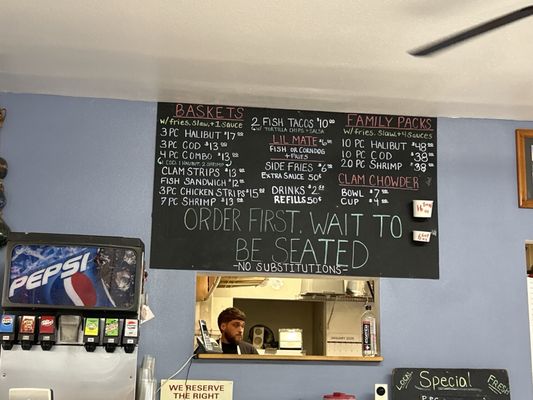 BASKETS
w/fries, slaw, + 1 sauce
3 PC HALIBUT $17.00
3 PC COD $13.00
4 PC COMBO $13.00
CLAM STRIPS $13.00
FISH SANDWICH $12.00
3PC CHICKEN STRIPS $15.00
7 PC SHRIMP $13.00
2 FISH TACOS $10.00
w/ TORTILLA CHIPS + SALSA
LIL MATE $6.00
FISH OR CORNDOG
+ FRIES
SIDE FRIES $6.00
EXTRA SAUCE 50¢
DRINKS $2.00
REFILLS 50¢
FAMILY PACKS
w/fries, slaw + 4 sauces
10 PC HALIBUT $48.00
10 PC COD $38.00
20 PC SHRIMP $38.00
CLAM CHOWDER
BOWL $7.00
CUP $4.00
ORDER FIRST, WAIT TO
BE SEATED
-NO SUBSTITUTIONS-
PEPSI
pepsi
WE RESERVE
THE RIGHT
LOCAL
Special
FRESH